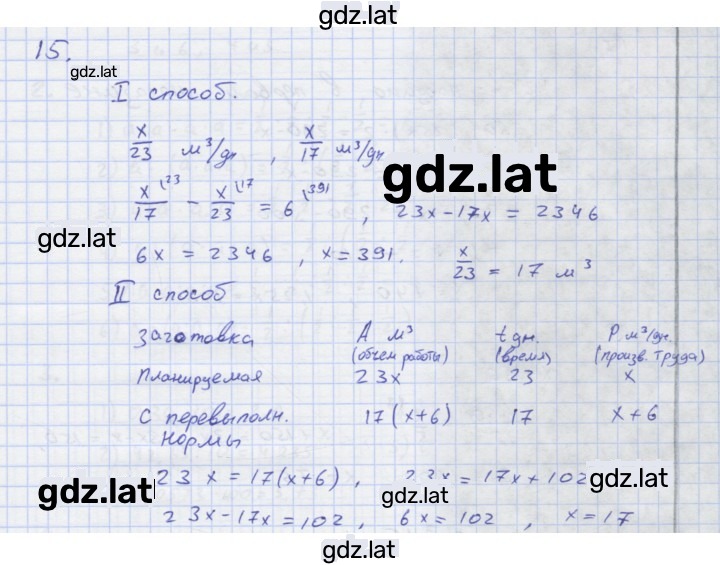 gdz.lat
15.
gdz.lat
I способ.
x/23 м³/дн , x/17 м³/дн
gdz.lat
x/17 \23 − x/23 \17 = 6 \391 , 23x−17x = 2346
gdz.lat
6x = 2346 , x = 391. x/23 = 17 м³
II способ
Заготовка A м³ t дн. P м³/дн.
(объем работы) (время) (произв. труда)
Планируемая 23x 23 x
С перевыполн. 17(x+6) 17 x+6
нормы
23x = 17(x+6) , 23x = 17x + 102
gdz.lat gdz.lat gdz.lat
23x−17x = 102 , 6x = 102 , x = 17
gdz.lat